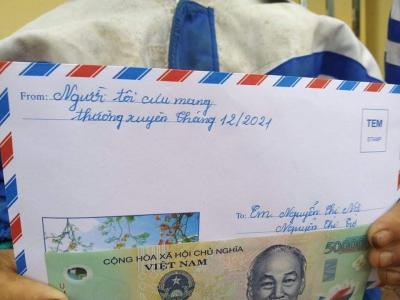 From: Người tôi cưu mang
thường xuyên tháng 12/2021
TEM
STAMP
To: Em. Nguyễn Thị
Nguyễn Thị
CỘNG HÒA XÃ HỘI CHỦ NGHĨA
VIỆT NAM